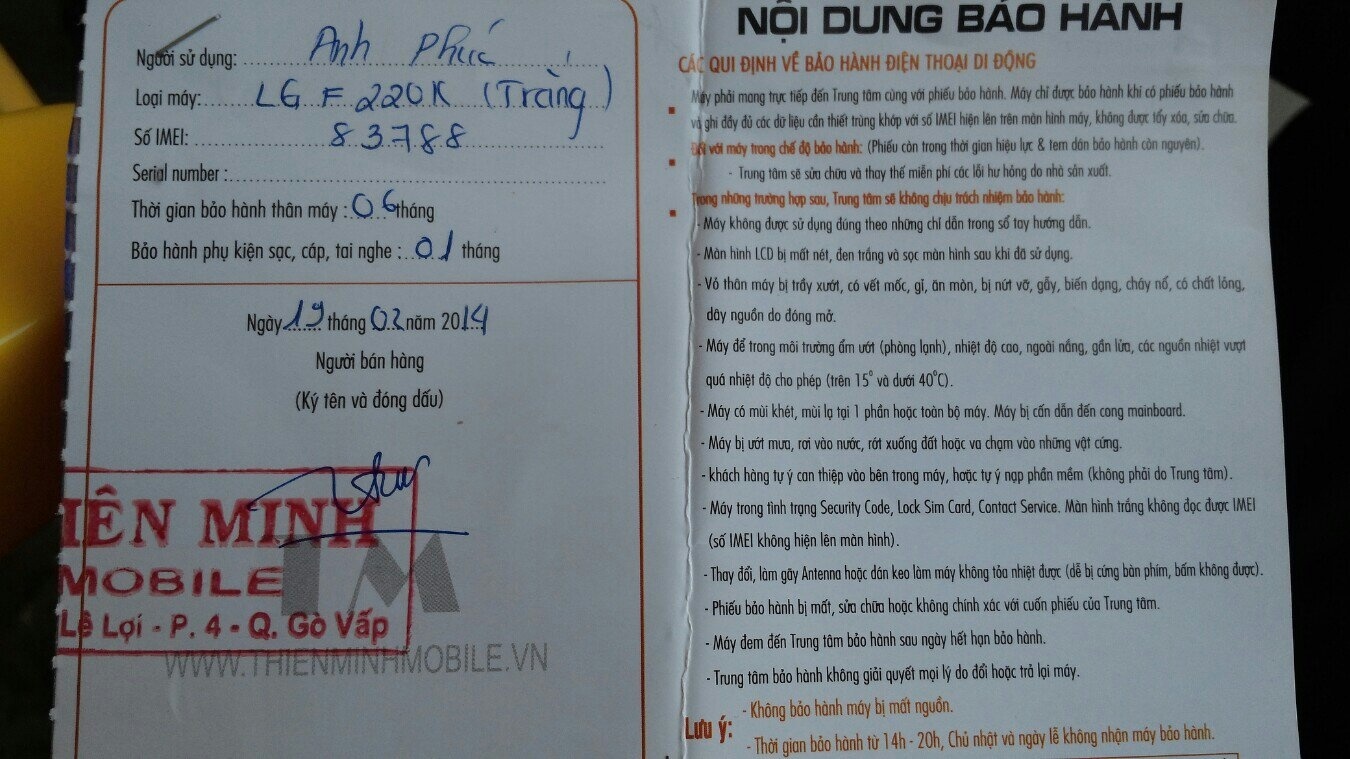 Người sử dụng: Anh Phúc
Loại máy: LG F 220K (Tràng)
Số IMEI: 83788
Serial number :
Thời gian bảo hành thân máy : 06 tháng
Bảo hành phụ kiện sạc, cáp, tai nghe : 01 tháng
Ngày 19 tháng 02 năm 2014
Người bán hàng
(Ký tên và đóng dấu)
IÊN MINH
MOBILE
Lê Lợi - P. 4 - Q. Gò Vấp
TM
WWW.THIENMINHMOBILE.VN
NỘI DUNG BẢO HÀNH
CÁC QUI ĐỊNH VỀ BẢO HÀNH ĐIỆN THOẠI DI ĐỘNG
Máy phải mang trực tiếp đến Trung tâm cùng với phiếu bảo hành. Máy chỉ được bảo hành khi có phiếu bảo hành
và ghi đầy đủ các dữ liệu cần thiết trùng khớp với số IMEI hiện lên trên màn hình máy, không được tẩy xóa, sửa chữa.
Đối với máy trong chế độ bảo hành: (Phiếu còn trong thời gian hiệu lực & tem dán bảo hành còn nguyên).
- Trung tâm sẽ sửa chữa và thay thế miễn phí các lỗi hư hỏng do nhà sản xuất.
Trong những trường hợp sau, Trung tâm sẽ không chịu trách nhiệm bảo hành:
- Máy không được sử dụng đúng theo những chỉ dẫn trong sổ tay hướng dẫn.
- Màn hình LCD bị mất nét, đen trắng và sọc màn hình sau khi đã sử dụng.
- Vỏ thân máy bị trầy xướt, có vết mốc, gỉ, ăn mòn, bị nứt vỡ, gẫy, biến dạng, cháy nổ, có chất lỏng,
dây nguồn do đóng mở.
- Máy để trong môi trường ẩm ướt (phòng lạnh), nhiệt độ cao, ngoài nắng, gần lửa, các nguồn nhiệt vượt
quá nhiệt độ cho phép (trên 15° và dưới 40°C).
- Máy có mùi khét, mùi lạ tại 1 phần hoặc toàn bộ máy. Máy bị cấn dẫn đến cong mainboard.
- Máy bị ướt mưa, rơi vào nước, rớt xuống đất hoặc va chạm vào những vật cứng.
- khách hàng tự ý can thiệp vào bên trong máy, hoặc tự ý nạp phần mềm (không phải do Trung tâm).
- Máy trong tình trạng Security Code, Lock Sim Card, Contact Service. Màn hình trắng không đọc được IMEI
(số IMEI không hiện lên màn hình).
- Thay đổi, làm gãy Antenna hoặc dán keo làm máy không tỏa nhiệt được (dễ bị cứng bàn phím, bấm không được).
- Phiếu bảo hành bị mất, sửa chữa hoặc không chính xác với cuốn phiếu của Trung tâm.
- Máy đem đến Trung tâm bảo hành sau ngày hết hạn bảo hành.
- Trung tâm bảo hành không giải quyết mọi lý do đổi hoặc trả lại máy.
Lưu ý: - Không bảo hành máy bị mất nguồn.
- Thời gian bảo hành từ 14h - 20h, Chủ nhật và ngày lễ không nhận máy bảo hành.